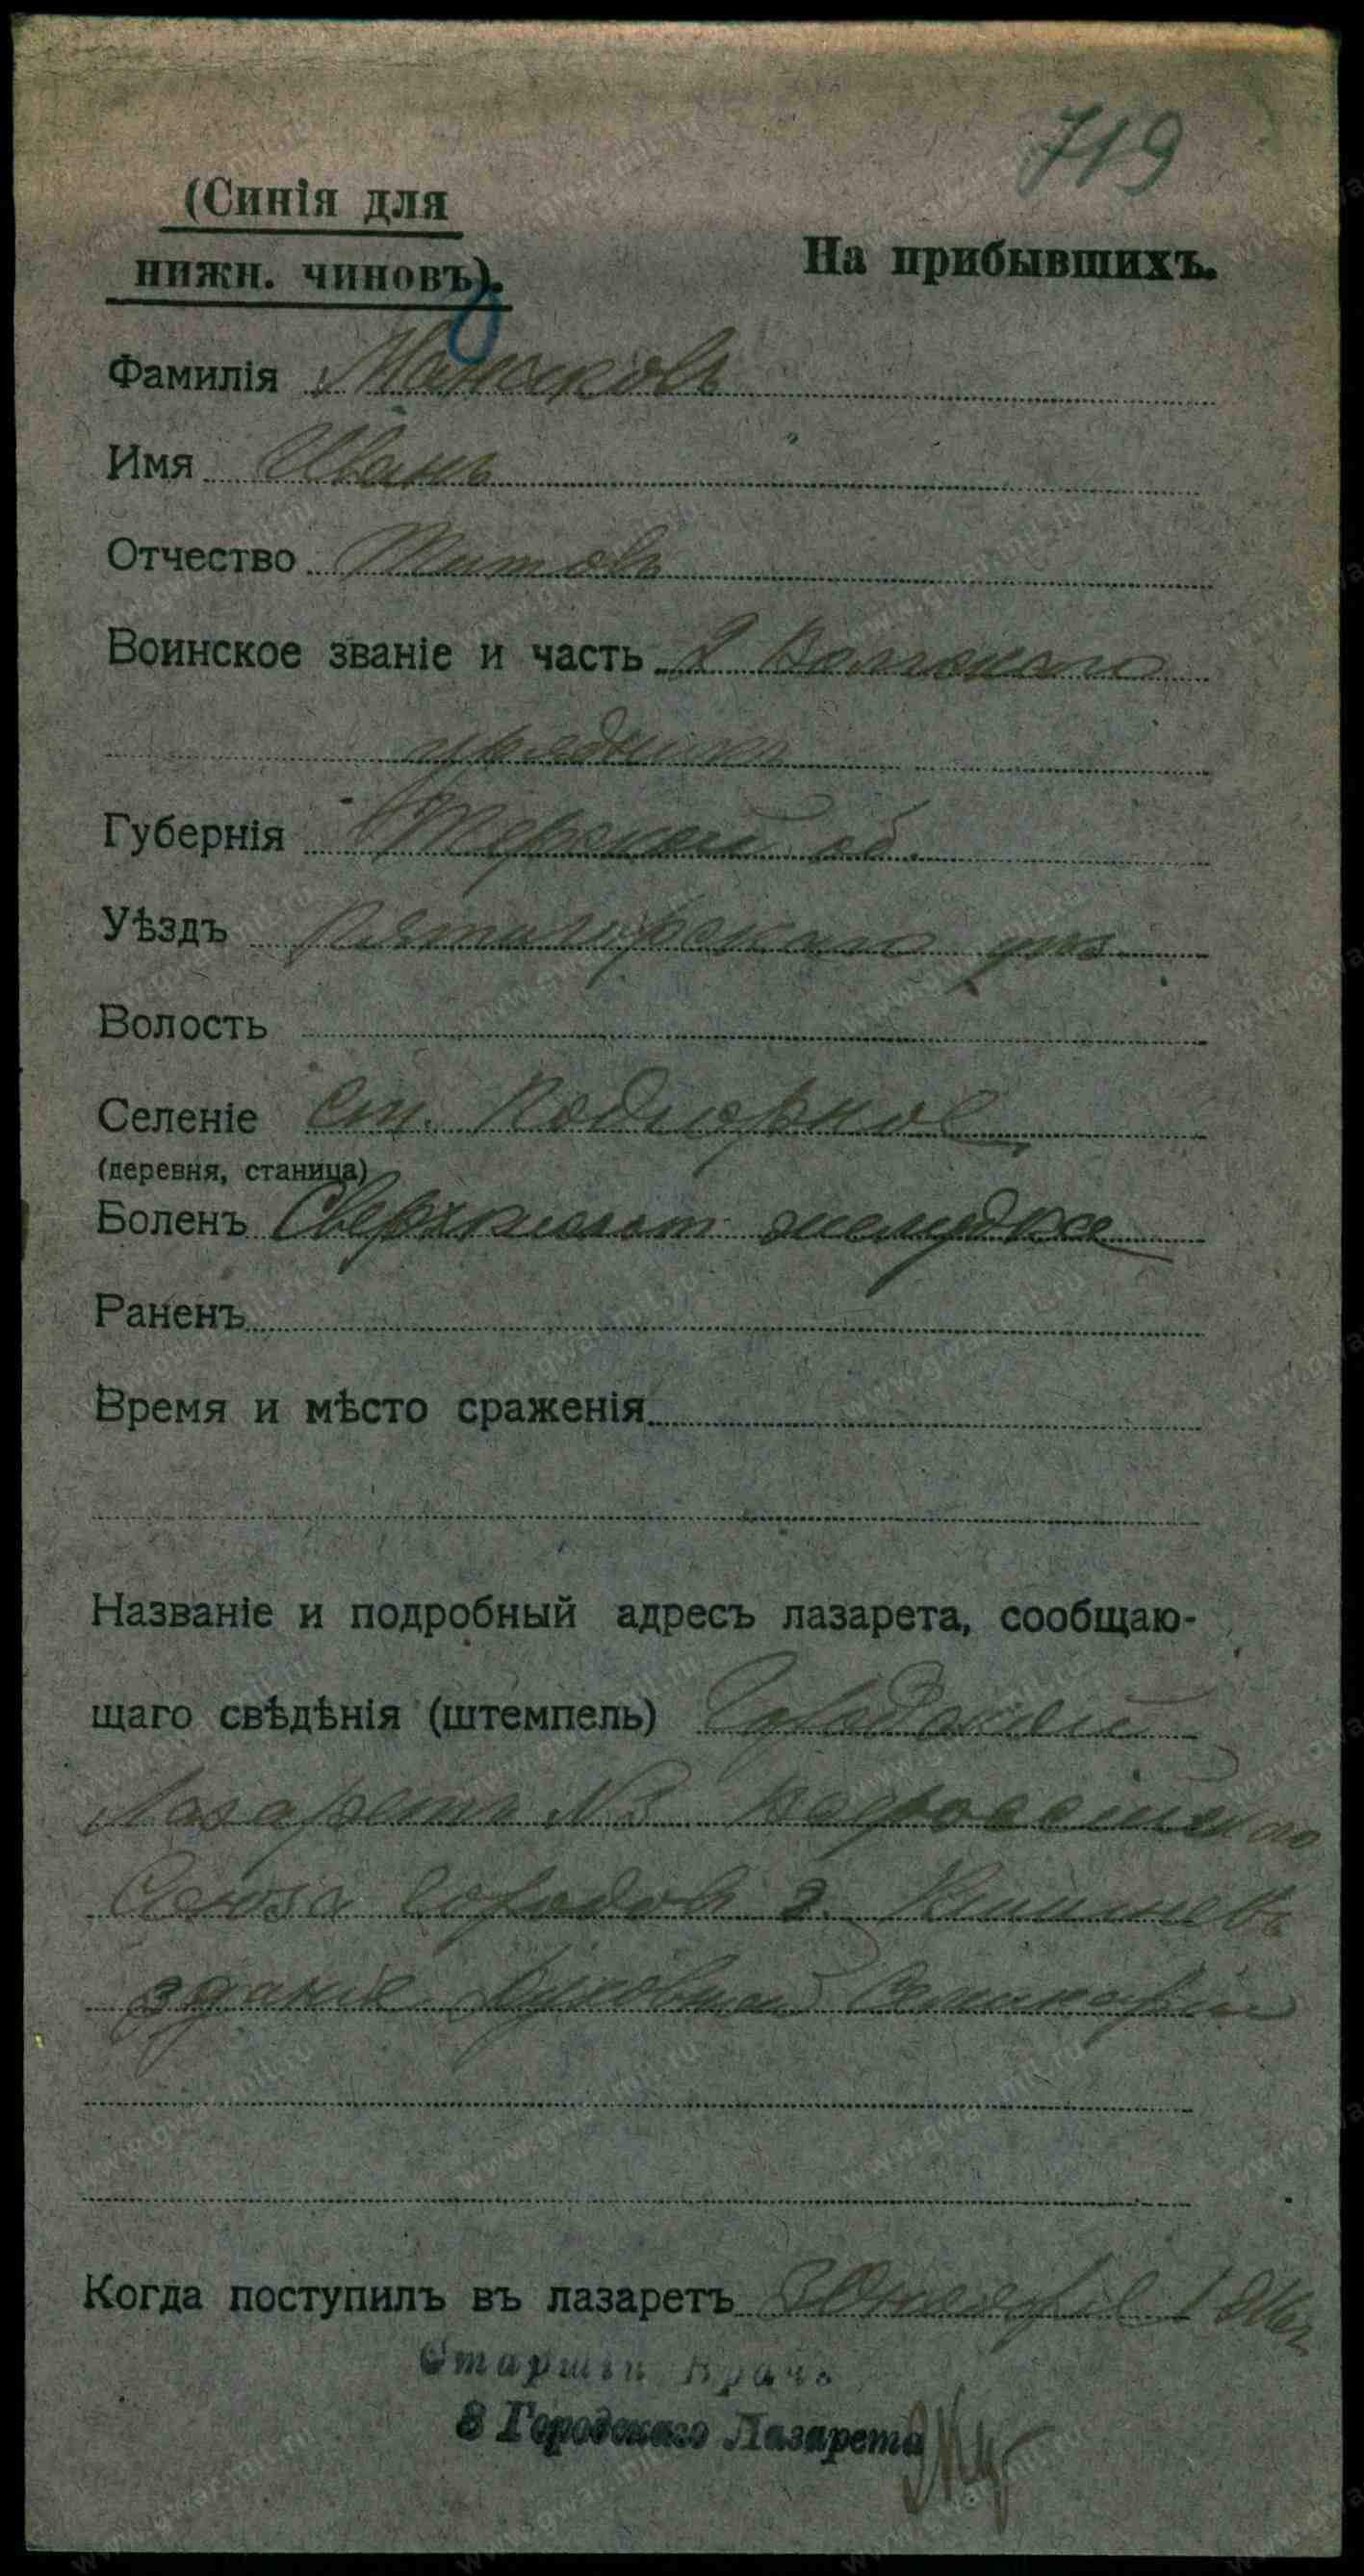 719
(Синія для
нижн. чиновъ).
На прибывшихъ.
Фамилія Машковъ
Имя Иванъ
Отчество Титовъ
Воинское званіе и часть 2 Волгскаго
урядникъ
Губернія Терской об.
Уѣздъ Пятигорскаго
Волость
Селеніе ст. Подгорной
(деревня, станица)
Боленъ Сверхкислот. желудка
Раненъ
Время и мѣсто сраженія
Названіе и подробный адресъ лазарета, сообщаю-
щаго свѣдѣнія (штемпель) Городской
Лазаретъ № Всероссийскаго
Союза городовъ г. Кишиневъ
зданіе Духовной Семинаріи
Когда поступилъ въ лазаретъ 30 ноября
Старшій Врачъ
8 Городскаго Лазарета